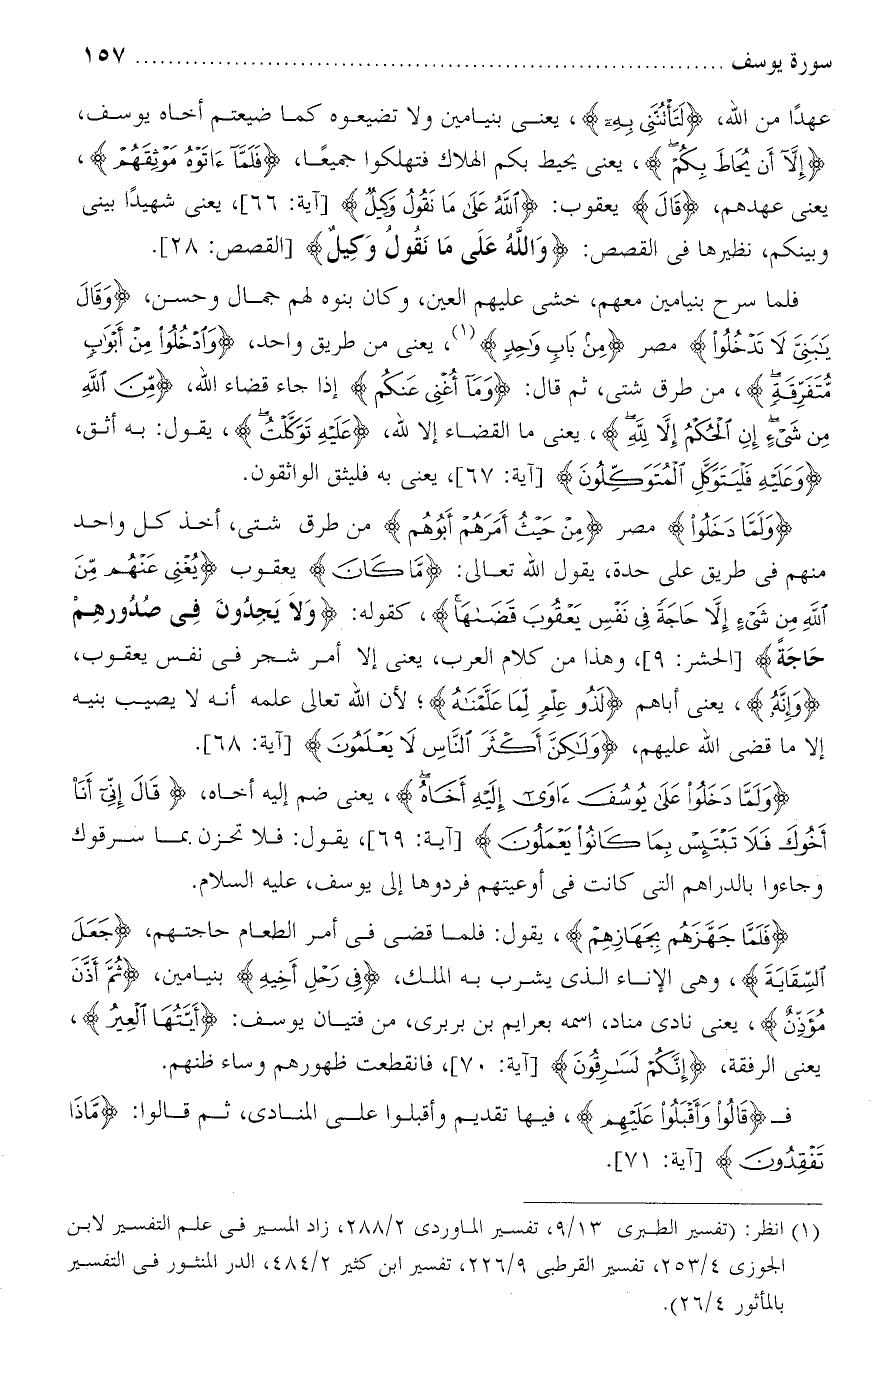 سورة يوسف ........................................................................ ١٥٧
عهدًا من الله، ﴿لَتَأْتُنَّنِى بِهِۦٓ﴾، يعنى بنيامين ولا تضيعوه كما ضيعتم أخاه يوسف،
﴿إِلَّآ أَن يُحَاطَ بِكُمْ ۖ﴾، يعنى يحيط بكم الهلاك فتهلكوا جميعًا، ﴿فَلَمَّآ ءَاتَوْهُ مَوْثِقَهُمْ﴾،
يعنى عهدهم، ﴿قَالَ﴾ يعقوب: ﴿ٱللَّهُ عَلَىٰ مَا نَقُولُ وَكِيلٌ﴾ [آية: ٦٦]، يعنى شهيدًا بينى
وبينكم، نظيرها فى القصص: ﴿وَاللَّهُ عَلَى مَا نَقُولُ وَكِيلٌ﴾ [القصص: ٢٨].
فلما سرح بنيامين معهم، خشى عليهم العين، وكان بنوه لهم جمال وحسن، ﴿وَقَالَ
يَٰبَنِىَّ لَا تَدْخُلُوا۟﴾ مصر ﴿مِنۢ بَابٍ وَٰحِدٍ﴾(١)، يعنى من طريق واحد، ﴿وَٱدْخُلُوا۟ مِنْ أَبْوَٰبٍ
مُّتَفَرِّقَةٍ ۖ﴾، من طرق شتى، ثم قال: ﴿وَمَآ أُغْنِى عَنكُم﴾ إذا جاء قضاء الله، ﴿مِّنَ ٱللَّهِ
مِن شَىْءٍ ۖ إِنِ ٱلْحُكْمُ إِلَّا لِلَّهِ ۖ﴾، يعنى ما القضاء إلا لله، ﴿عَلَيْهِ تَوَكَّلْتُ ۖ﴾، يقول: به أثق،
﴿وَعَلَيْهِ فَلْيَتَوَكَّلِ ٱلْمُتَوَكِّلُونَ﴾ [آية: ٦٧]، يعنى به فليثق الواثقون.
﴿وَلَمَّا دَخَلُوا۟﴾ مصر ﴿مِنْ حَيْثُ أَمَرَهُمْ أَبُوهُم﴾ من طرق شتى، أخذ كل واحد
منهم فى طريق على حدة، يقول الله تعالى: ﴿مَّا كَانَ﴾ يعقوب ﴿يُغْنِى عَنْهُم مِّنَ
ٱللَّهِ مِن شَىْءٍ إِلَّا حَاجَةً فِى نَفْسِ يَعْقُوبَ قَضَىٰهَا ۚ﴾، كقوله: ﴿وَلاَ يَجِدُونَ فِى صُدُورِهِمْ
حَاجَةً﴾ [الحشر: ٩]، وهذا من كلام العرب، يعنى إلا أمر شجر فى نفس يعقوب،
﴿وَإِنَّهُۥ﴾، يعنى أباهم ﴿لَذُو عِلْمٍ لِّمَا عَلَّمْنَٰهُ﴾؛ لأن الله تعالى علمه أنه لا يصيب بنيه
إلا ما قضى الله عليهم، ﴿وَلَٰكِنَّ أَكْثَرَ ٱلنَّاسِ لَا يَعْلَمُونَ﴾ [آية: ٦٨].
﴿وَلَمَّا دَخَلُوا۟ عَلَىٰ يُوسُفَ ءَاوَىٰٓ إِلَيْهِ أَخَاهُ ۖ﴾، يعنى ضم إليه أخاه، ﴿قَالَ إِنِّىٓ أَنَا۠
أَخُوكَ فَلَا تَبْتَئِسْ بِمَا كَانُوا۟ يَعْمَلُونَ﴾ [آية: ٦٩]، يقول: فلا تحزن بما سرقوك
وجاءوا بالدراهم التى كانت فى أوعيتهم فردوها إلى يوسف، عليه السلام.
﴿فَلَمَّا جَهَّزَهُم بِجَهَازِهِمْ﴾، يقول: فلما قضى فى أمر الطعام حاجتهم، ﴿جَعَلَ
ٱلسِّقَايَةَ﴾، وهى الإناء الذى يشرب به الملك، ﴿فِى رَحْلِ أَخِيهِ﴾ بنيامين، ﴿ثُمَّ أَذَّنَ
مُؤَذِّنٌ﴾، يعنى نادى مناد، اسمه بعرايم بن بربرى، من فتيان يوسف: ﴿أَيَّتُهَا ٱلْعِيرُ﴾،
يعنى الرفقة، ﴿إِنَّكُمْ لَسَٰرِقُونَ﴾ [آية: ٧٠]، فانقطعت ظهورهم وساء ظنهم.
فـ ﴿قَالُوا۟ وَأَقْبَلُوا۟ عَلَيْهِم﴾، فيها تقديم وأقبلوا على المنادى، ثم قالوا: ﴿مَّاذَا
تَفْقِدُونَ﴾ [آية: ٧١].
(١) انظر: (تفسير الطبرى ٩/١٣، تفسير الماوردى ٢٨٨/٢، زاد المسير فى علم التفسير لابن
الجوزى ٢٥٣/٤، تفسير القرطبى ٢٢٦/٩، تفسير ابن كثير ٤٨٤/٢، الدر المنثور فى التفسير
بالمأثور ٢٦/٤).